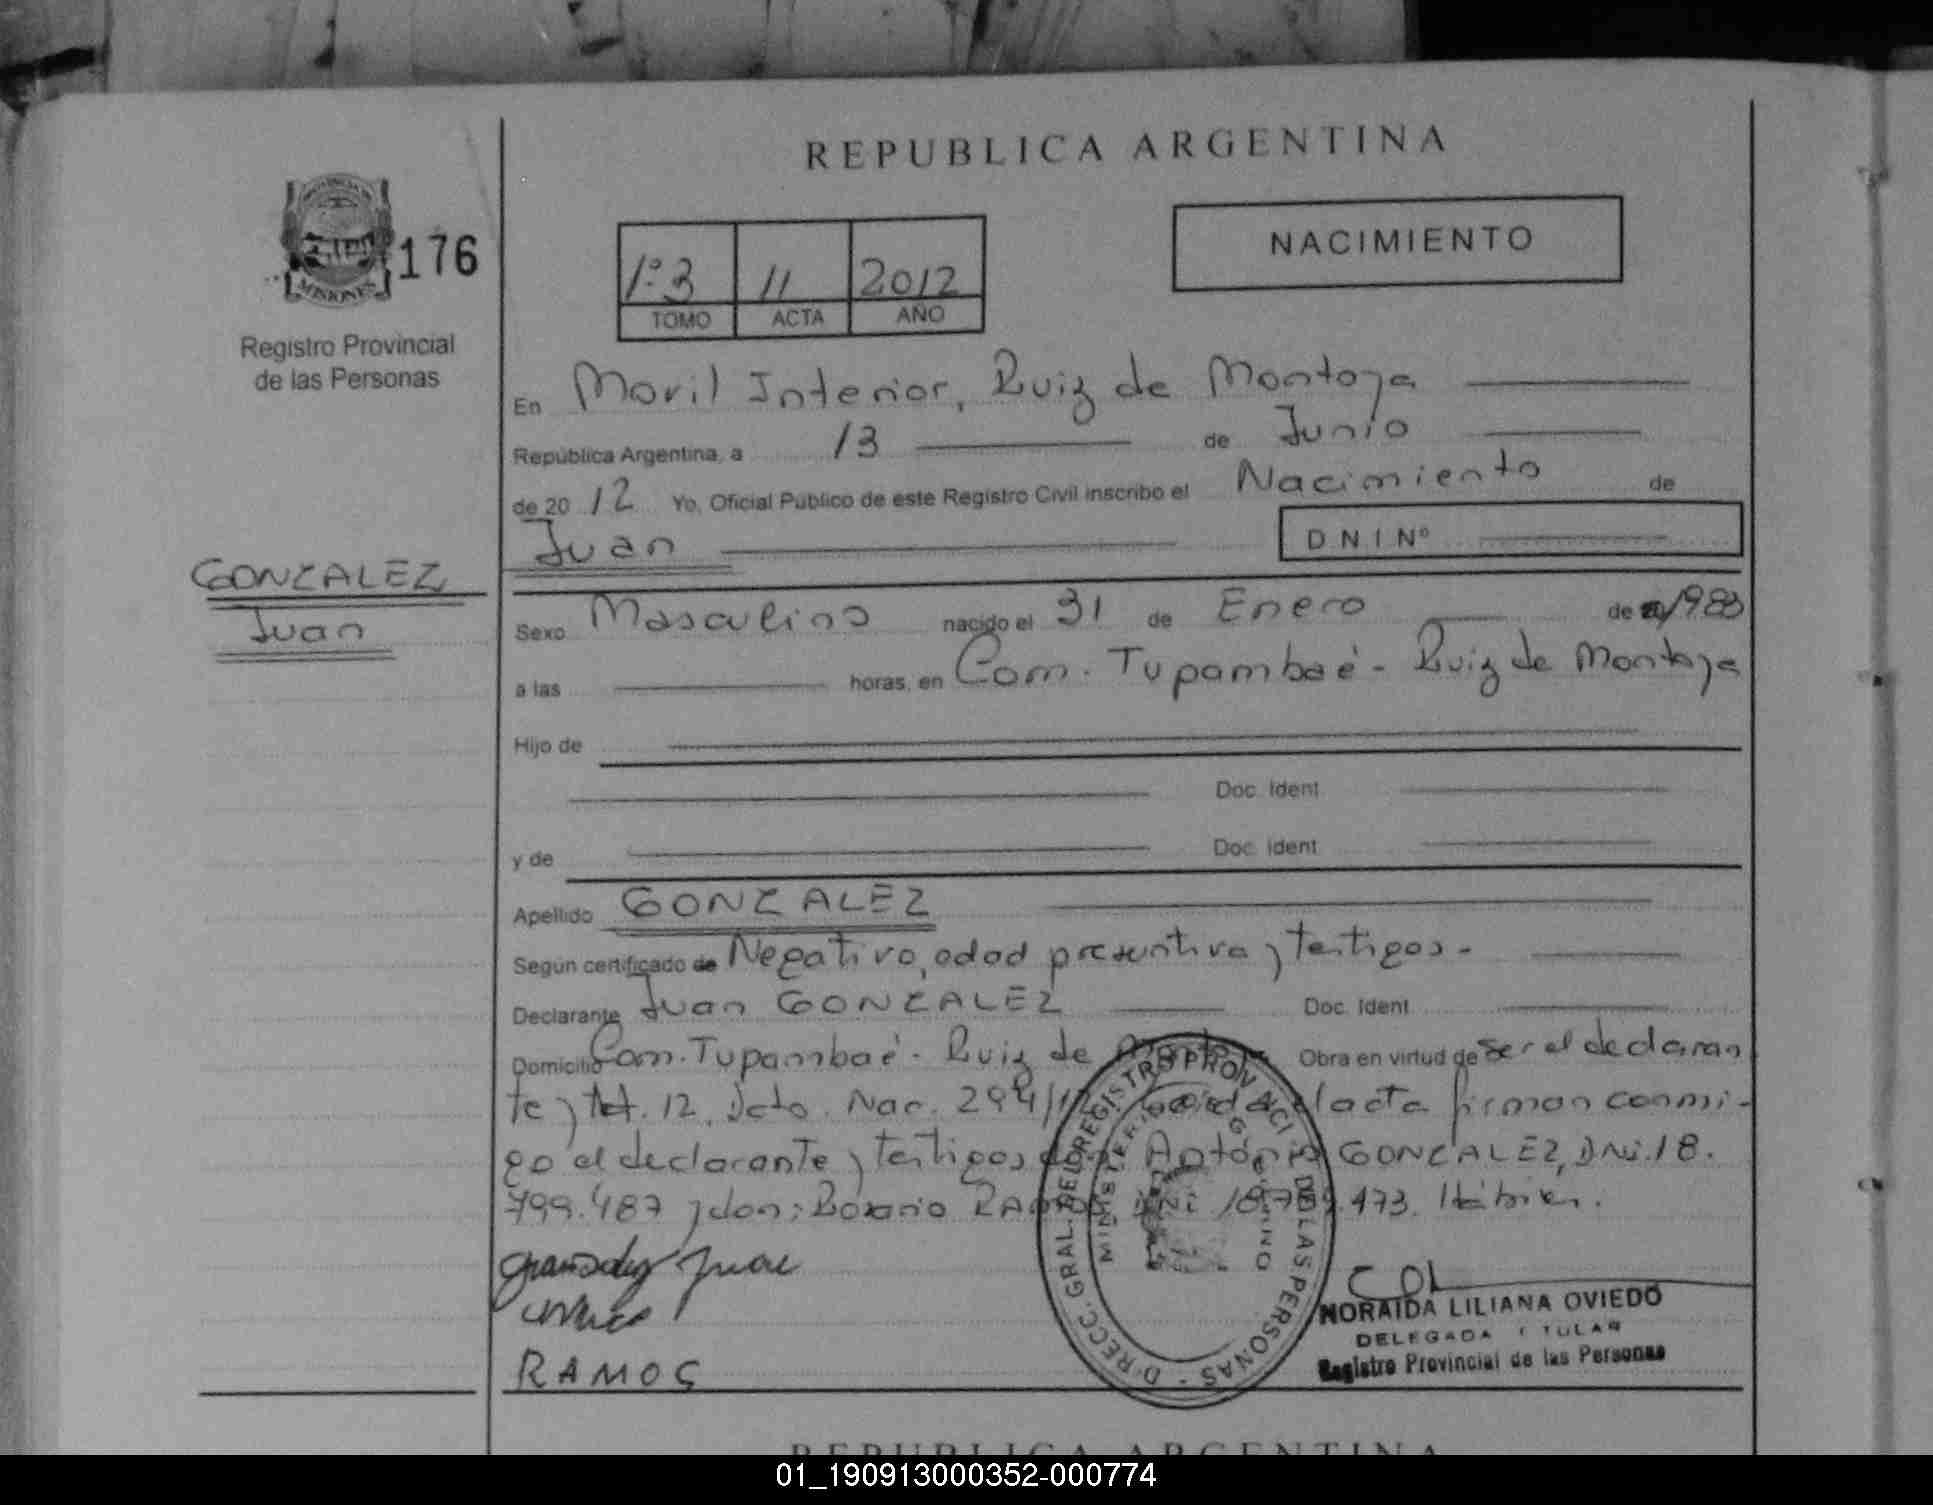 REPUBLICA ARGENTINA
PROVINCIA DE
MISIONES
176
Registro Provincial
de las Personas
1º3 11 2012
TOMO ACTA AÑO
NACIMIENTO
En Movil Interior, Ruiz de Montoya
República Argentina, a 13 de Junio
de 2012 Yo, Oficial Público de este Registro Civil inscribo el Nacimiento de
Juan
D N I Nº
GONZALEZ
Juan
Sexo Masculino nacido el 31 de Enero de 1983
a las horas, en Com. Tupambaé - Ruiz de Montoya
Hijo de
Doc. Ident
y de Doc. Ident
Apellido GONZALEZ
Según certificado de Negativo, edad presuntiva y testigos -
Declarante Juan GONZALEZ Doc. Ident
Domicilio Com. Tupambaé - Ruiz de Obra en virtud de ser el declaran
te y Art. 12. Dcto. Nac. 294/ acta firman conmi-
go el declarante y testigos Antonio GONZALEZ, DNi. 18.
799.487 y don: Rosario RAMOS DNi 18.789.473. Hábiles.
RAMOS
DIRECC. GRAL. DEL REGISTRO PROVINCIAL DE LAS PERSONAS -
MINISTERIO DE GOBIERNO
NORAIDA LILIANA OVIEDO
DELEGADA TITULAR
Registro Provincial de las Personas
REPUBLICA ARGENTINA
01_190913000352-000774